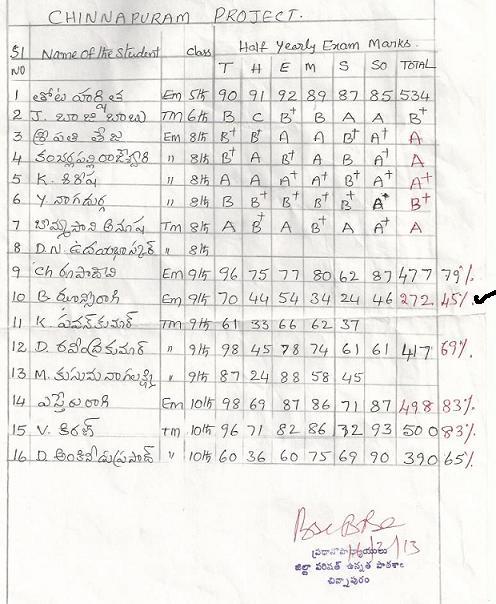 CHINNAPURAM PROJECT.
Sl NO Name of the Student class Half Yearly Exam Marks.
T H E M S So TOTAL
1 తోట హర్షిత Em 5th 90 91 92 89 87 85 534
2 J. బాజి బాబు TM 6th B C B+ B A A B+
3 శ్రీపతి తేజ Em 8th B+ B+ A A B+ A+ A
4 రాజేశ్వరి " 8th B+ A B+ A B A+ A
5 K. శిరీష " 8th A A A A+ B+ A+ A+
6 Y నాగదుర్గ " 8th B B+ B+ B+ B+ A+ B+
7 బొమ్మసాని అనూష Tm 8th A B+ A B+ A A+ A
8 D.N. ఉదయభాస్కర్ " 8th
9 Ch రూపాదేవి Em 9th 96 75 77 80 62 87 477 79%
10 B. ఝాన్సీరాణి Em 9th 70 44 54 34 24 46 272 45%
11 K. పవన్ కుమార్ TM 9th 61 33 66 62 37
12 D. రవీంద్రకుమార్ " 9th 98 45 78 74 61 61 417 69%
13 M. కుసుమ నాగలక్ష్మి " 9th 87 24 88 58 45
14 ఎస్తేరు రాణి Em 10th 98 69 87 86 71 87 498 83%
15 V. కిరణ్ TM 10th 96 71 82 86 72 93 500 83%
16 D. అంకినీడు ప్రసాద్ " 10th 60 36 60 75 69 90 390 65%
ప్రధానోపాధ్యాయులు
జిల్లా పరిషత్ ఉన్నత పాఠశాల
చిన్నాపురం